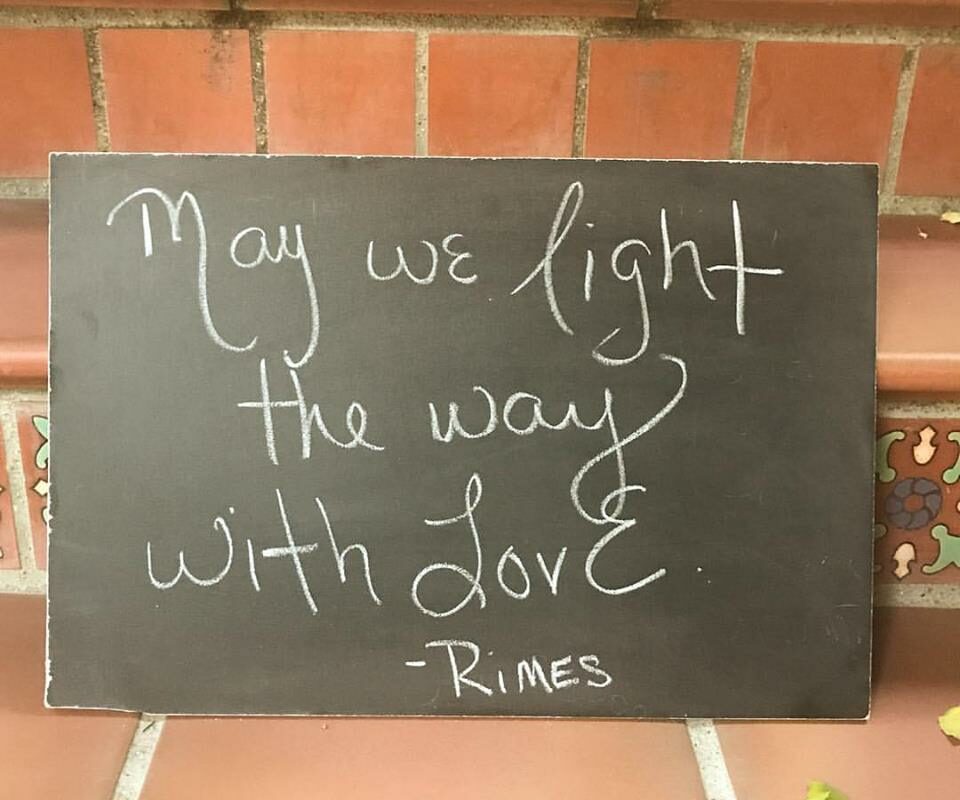 May we light
the way
with Love.
-RiMES